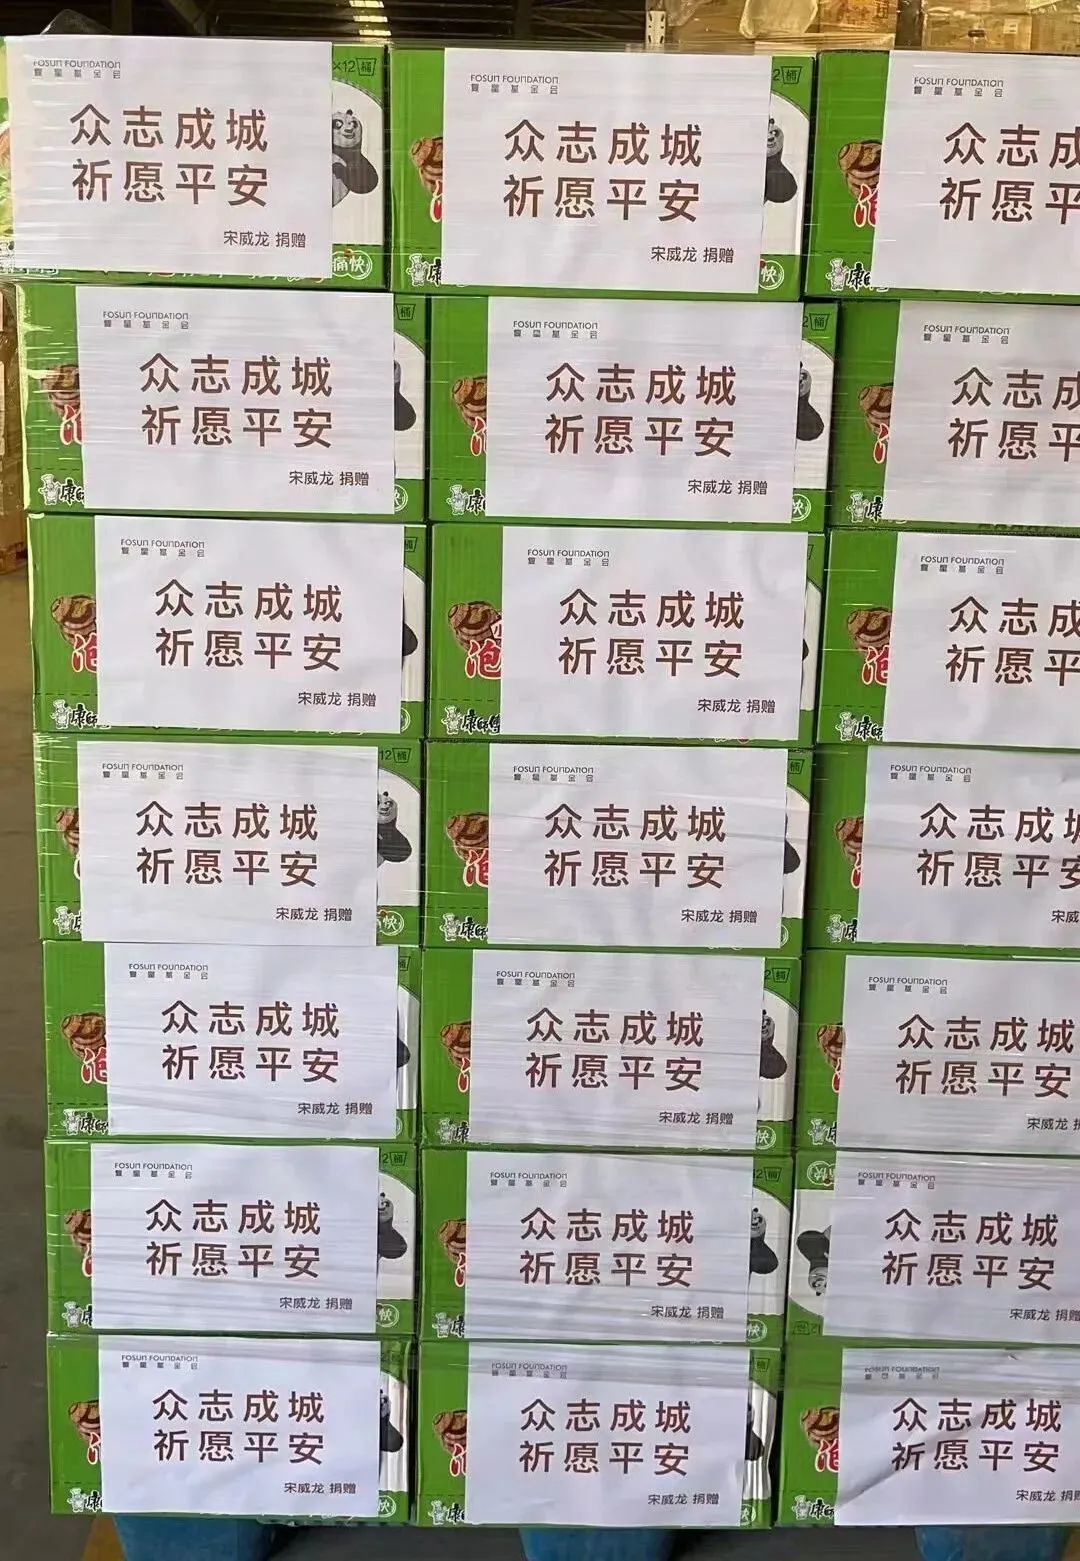 FOSUN FOUNDATION
复星基金会
×12桶
众志成城
祈愿平安
宋威龙 捐赠
痛快
FOSUN FOUNDATION
复星基金会
2桶
众志成城
祈愿平安
宋威龙 捐赠
康
快
FOSUN FOUNDATION
复星基金会
众志成
祈愿平
泡
康师
FOSUN FOUNDATION
复星基金会
桶
众志成城
祈愿平安
宋威龙 捐赠
康师
快
FOSUN FOUNDATION
复星基金会
2桶
众志成城
祈愿平安
宋威龙 捐赠
康
快
FOSUN FOUNDATION
复星基金会
众志成
祈愿平
康
FOSUN FOUNDATION
复星基金会
众志成城
祈愿平安
泡
宋威龙 捐赠
康师
FOSUN FOUNDATION
复星基金会
众志成城
祈愿平安
泡
宋威龙 捐赠
康师傅
FOSUN FOUNDATION
复星基金会
众志成
祈愿平
泡
康师
FOSUN FOUNDATION
复星基金会
12桶
众志成城
祈愿平安
宋威龙 捐赠
康
快
FOSUN FOUNDATION
复星基金会
桶
众志成城
祈愿平安
泡
宋威龙 捐赠
康师
FOSUN FOUNDATION
复星基金会
众志成城
祈愿平安
宋威
康
FOSUN FOUNDATION
复星基金会
众志成城
祈愿平安
泡
宋威龙 捐赠
康
FOSUN FOUNDATION
复星基金会
2桶
众志成城
祈愿平安
宋威龙 捐赠
康
快
FOSUN FOUNDATION
复星基金会
众志成城
祈愿平安
宋威龙
康
FOSUN FOUNDATION
复星基金会
2桶
众志成城
祈愿平安
宋威龙 捐赠
康
快
FOSUN FOUNDATION
复星基金会
2桶
众志成城
祈愿平安
宋威龙 捐赠
康
快
FOSUN FOUNDATION
复星基金会
众志成城
祈愿平安
宋威龙 捐
FOSUN FOUNDATION
复星基金会
众志成城
祈愿平安
泡
宋威龙 捐赠
康
快
FOSUN FOUNDATION
复星基金会
桶
众志成城
祈愿平安
宋威龙 捐赠
康
FOSUN FOUNDATION
复星基金会
众志成城
祈愿平安
泡
宋威龙 捐
康